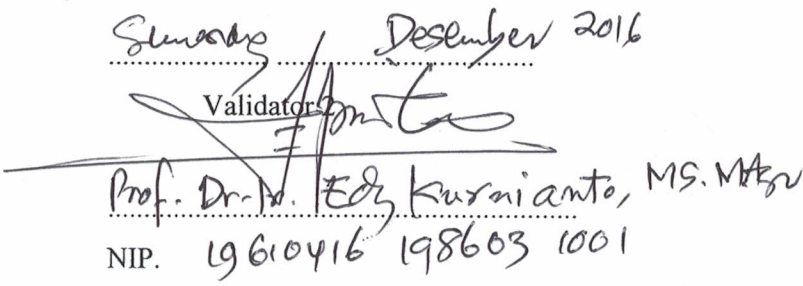 Semarang Desember 2016
Validator
Prof. Dr. Ir. Edy Kurnianto, MS. MAgr
NIP. 19610416 198603 1001